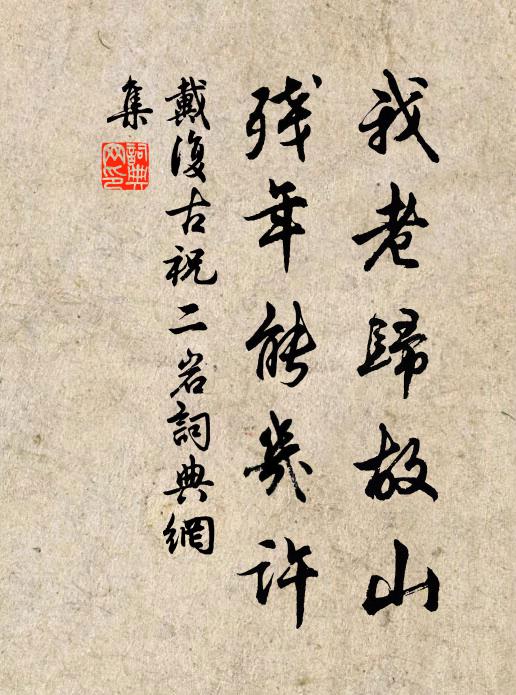 我老歸故山
殘年能幾許
戴復古祝二岩詞典網
集
詞典
网印